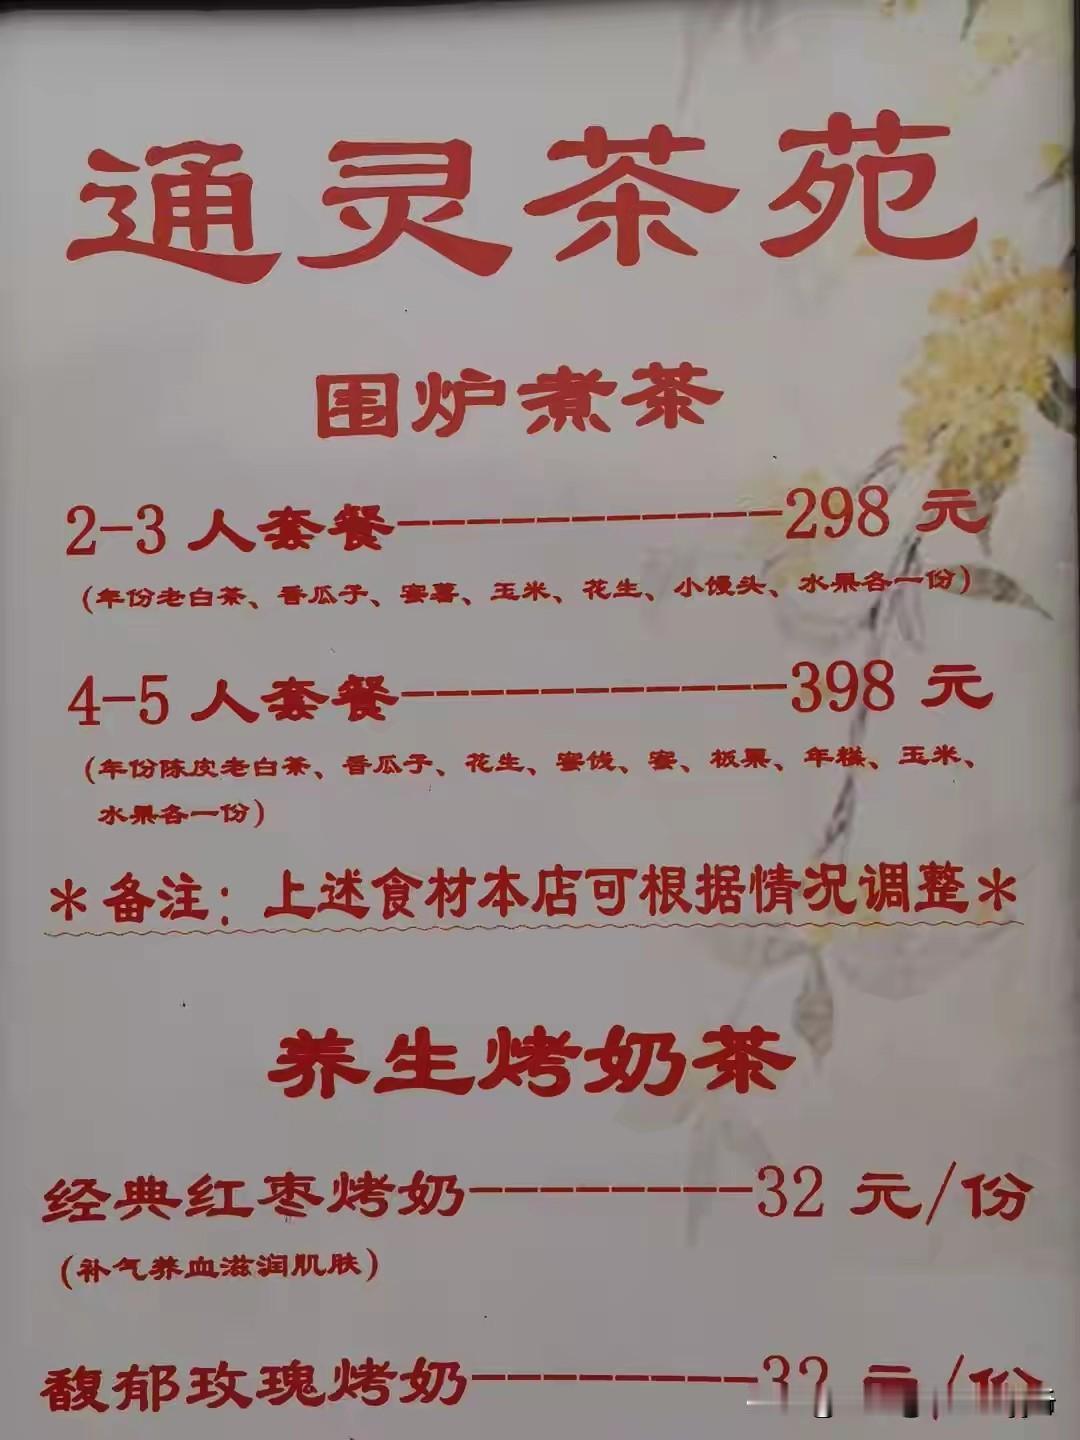 通灵茶苑
围炉煮茶
2-3 人套餐------------298 元
(年份老白茶、香瓜子、蜜薯、玉米、花生、小馒头、水果各一份)
4-5 人套餐------------398 元
(年份陈皮老白茶、香瓜子、花生、蜜饯、蜜、板栗、年糕、玉米、
水果各一份)
*备注: 上述食材本店可根据情况调整*
养生烤奶茶
经典红枣烤奶--------32 元/份
(补气养血滋润肌肤)
馥郁玫瑰烤奶--------32 元/份